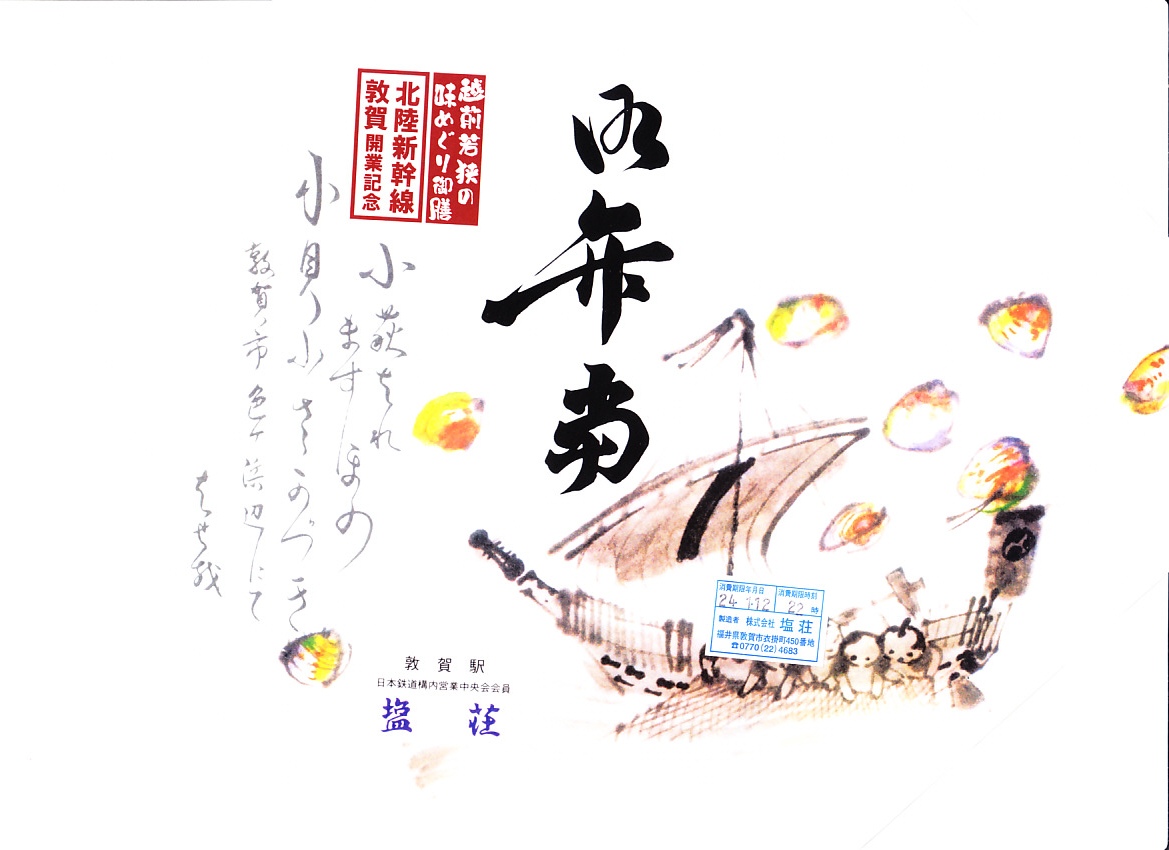 御弁当
越前若狭の
味めぐり御膳
北陸新幹線
敦賀開業記念
小萩ちれ
ますほの
小貝小さかづき
敦賀市色ヶ浜辺にて
ばせを
敦賀駅
日本鉄道構内営業中央会会員
塩荘
消費期限年月日
24 1.12
消費期限時刻
22時
製造者 株式会社 塩荘
福井県敦賀市衣掛町450番地
☎0770(22)4683